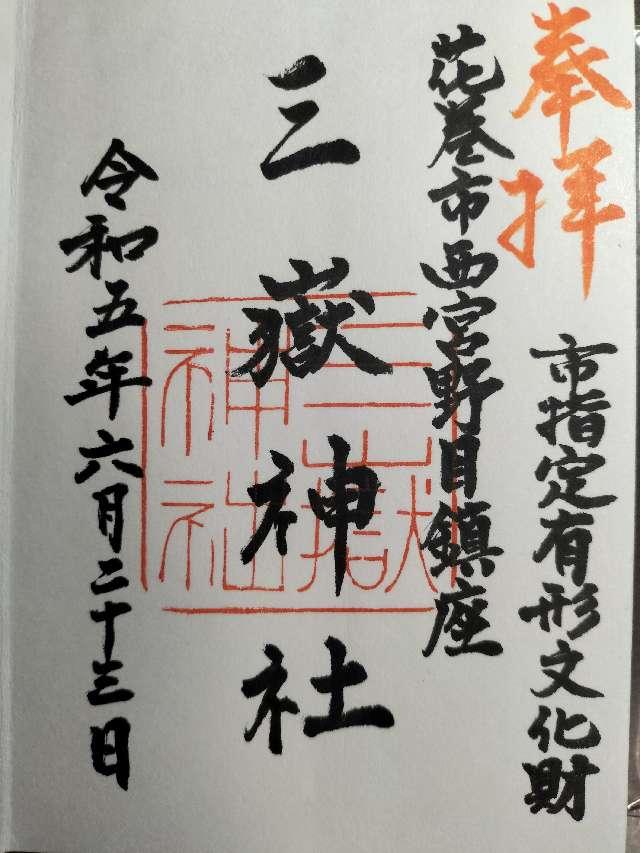 奉拝
市指定有形文化財
花巻市西宮野目鎮座
三嶽神社
三嶽神社
令和五年六月二十三日